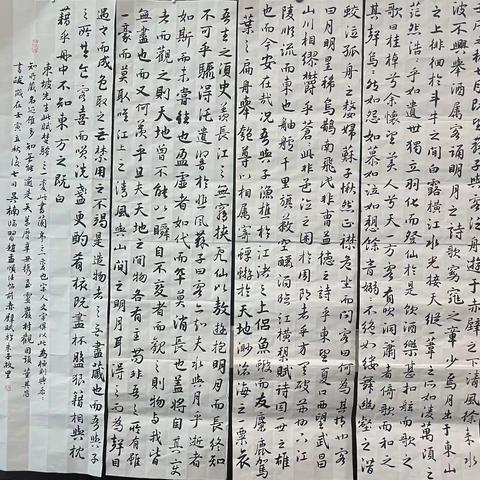 七月既望蘇子與客泛舟遊于赤壁之下清風徐來水
波不興舉酒屬客誦明月之詩歌窈窕之章少焉月出于東山
之上徘徊于斗牛之間白露橫江水光接天縱一葦之所如凌萬頃之
茫然浩乎如遺世獨立羽化而登仙於是飲酒樂甚扣舷而歌之
歌曰桂棹兮余懷望美人兮天一方客有吹洞簫者倚歌而和之
其聲嗚嗚然如怨如慕如泣如愬餘音嫋嫋不絕如縷舞幽壑之潛
蛟泣孤舟之嫠婦蘇子愀然正襟危坐而問客曰何為其然也客
曰月明星稀烏鵲南飛此非曹孟德之詩乎東望夏口西望武昌
山川相繆鬱乎蒼蒼此非孟德之困於周郎者乎方其破荊州下江
陵順流而東也舳艫千里旌旗蔽空釃酒臨江橫槊賦詩固一世之雄
也而今安在哉況吾與子漁樵於江渚之上侶魚蝦而友麋鹿駕
一葉之扁舟舉匏尊以相屬寄蜉蝣於天地渺滄海之一粟哀
吾生之須臾羨長江之無窮挾飛仙以遨遊抱明月而長終知
不可乎驟得託遺響於悲風蘇子曰客亦知夫水與月乎逝者
如斯而未嘗往也盈虛者如代而卒莫消長也蓋將自其變
者而觀之則天地曾不能一瞬自其不變者而觀之則物與我皆
無盡也而又何羨乎且夫天地之間物各有主苟非吾之所有雖
一毫而莫取惟江上之清風與山間之明月耳得之而為聲目
遇之而成色取之無禁用之不竭是造物者之無盡藏也而吾與子
之所共食客喜而笑洗盞更酌肴核既盡杯盤狼藉相與枕
藉乎舟中不知東方之既白
東坡先生此賦